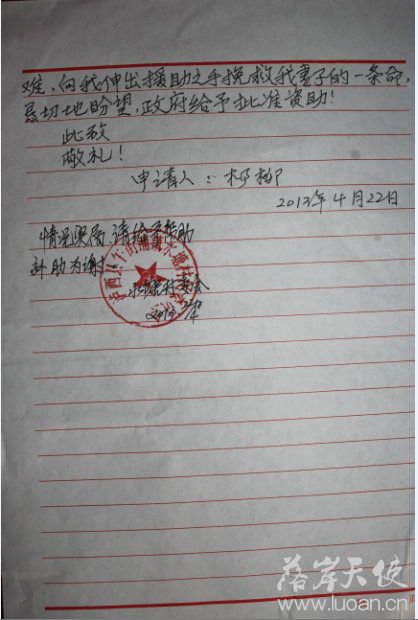 难，向我伸出援助之手挽救我妻子的一条命，
恳切地盼望，政府给予批准资助！
此致
敬礼！
申请人：
2013年4月22日
情况属实，请给予帮助
补助为谢！
村委会
落岸天使
www.luoan.cn